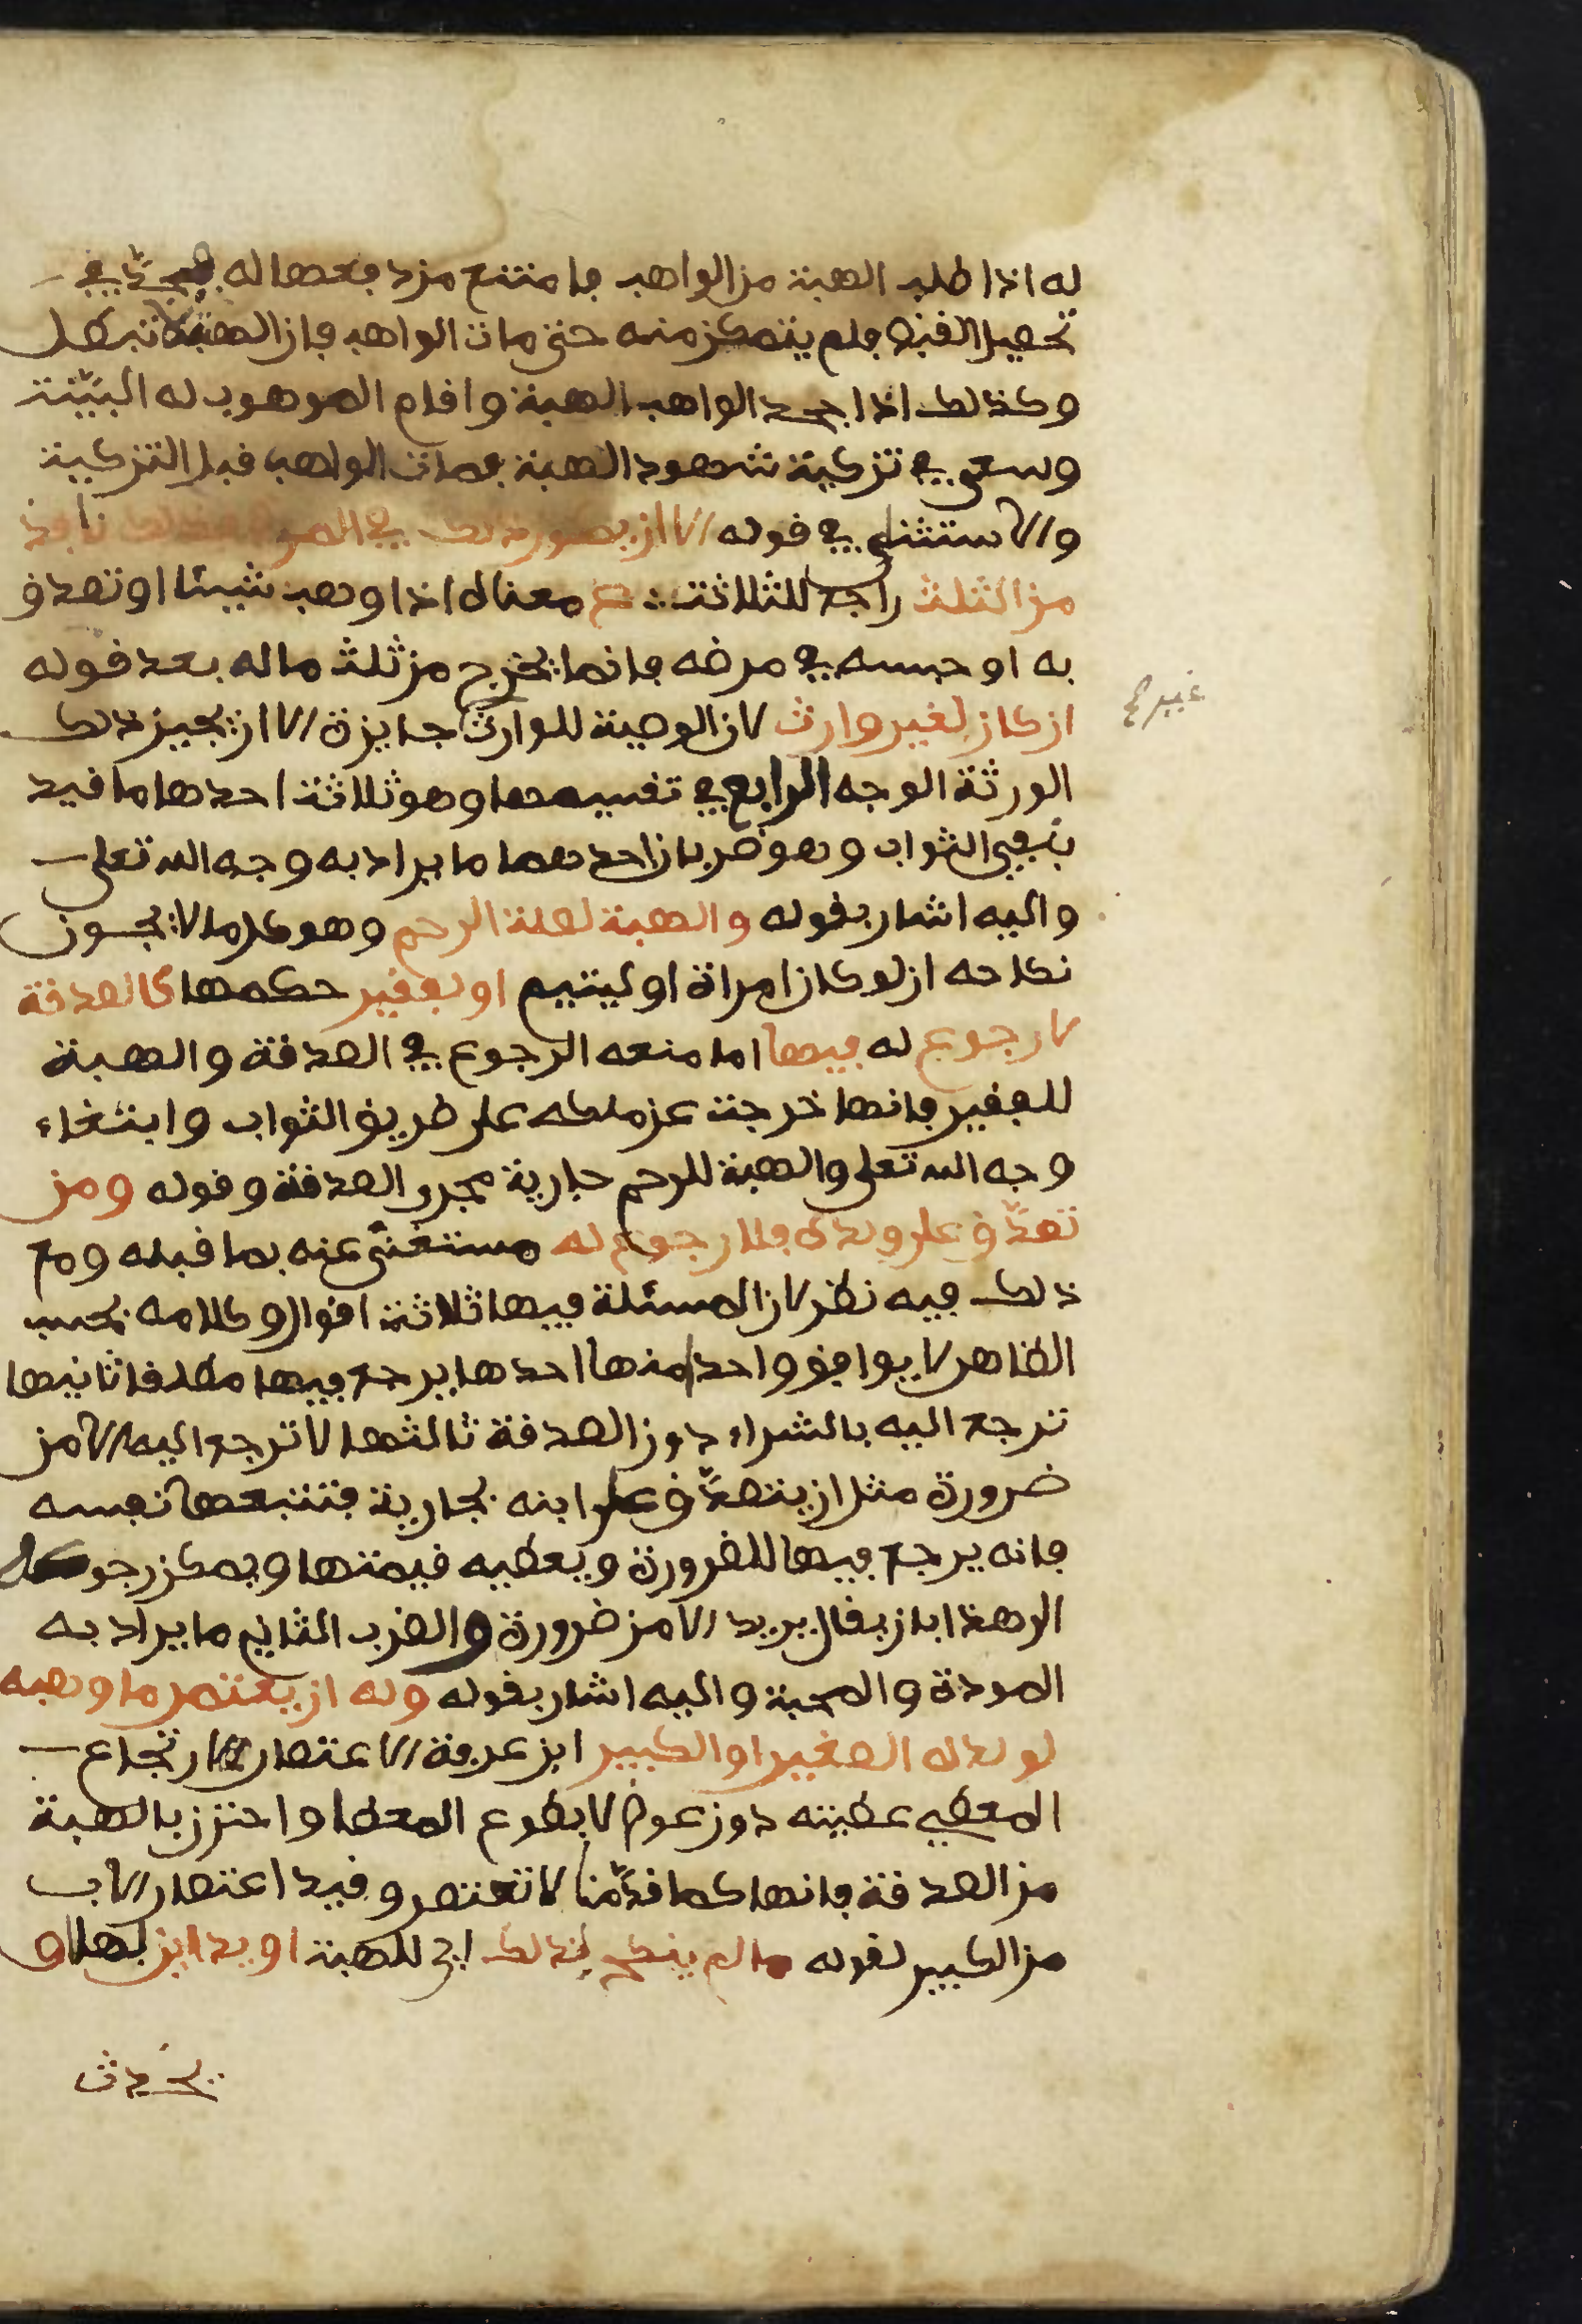 له اذا طلب الهبة من الواهب فامتنع من دفعها له فجد في
تحصيل القبض فلم يتمكن منه حتى مات الواهب فان الهبة لا تبطل
وكذلك اذا جحد الواهب الهبة واقام الموهوب له البيّنة
وسعى في تزكية شهود الهبة فمات الواهب قبل التزكية
والاستثنى في قوله الا ان يكون ذلك في المرض فذلك نافذ
من الثلث راجع للثلاثة معناه اذا وهب شيئا او تصدق
به او حبسه في مرضه فانما يخرج من ثلث ماله بعد قوله
ان كان لغير وارث لان الوصية للوارث جايزة الا ان يجيز ذلك
غيرها
الورثة الوجه الرابع في تقسيمها وهو ثلاثة احدها ما قيد
بنفي الثواب وهو ضربان احدهما ما يراد به وجه الله تعلى
واليه اشار بقوله والهبة لصلة الرحم وهو كل ما لا يجوز
نكاحه ان لو كان امراة او ليتيم او لفقير حكمها كالصدقة
لا رجوع له فيها اما منعه الرجوع في الصدقة والهبة
للفقير فانها خرجت عن ملكه على طريق الثواب وابتغاء
وجه الله تعلى والهبة للرحم جارية مجرى الصدقة وقوله ومن
تصدّق على ولده فلا رجوع له مستغنًى عنه بما قبله ومع
ذلك فيه نظر لان المسئلة فيها ثلاثة اقوال وكلامه بحسب
الظاهر لا يوافق واحدا منها احدها يرجع فيها مطلقا ثانيها
ترجع اليه بالشراء دون الصدقة ثالثها لا ترجع اليه الا من
ضرورة مثل ان يتصدّق على ابنه بجارية فتتبعها نفسه
فانه يرجع فيها للضرورة ويعطيه قيمتها ويمكن رجوعه
الى هذا بان يقال يريد الا من ضرورة والضرب الثاني ما يراد به
المودة والمحبة واليه اشار بقوله وله ان يعتصر ما وهبه
لولده الصغير او الكبير ابن عرفة الاعتصار ارتجاع
المعطي عطيته دون عوض لا بطوع المعطا واحترز بالهبة
من الصدقة فانها كما قدّمنا لا تعتصر وقيد اعتصار الاب
من الكبير لقوله ما لم ينكح لذلك اي للهبة او يداين لها او
يحدث